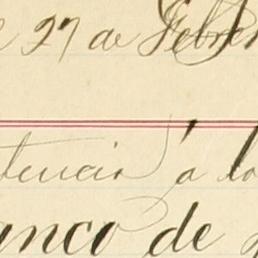 27 de Febre
tencia á la
anco de